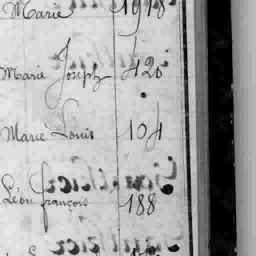 Marie 1918
Marie Joseph 420
Marie Louis 104
Léon françois 188